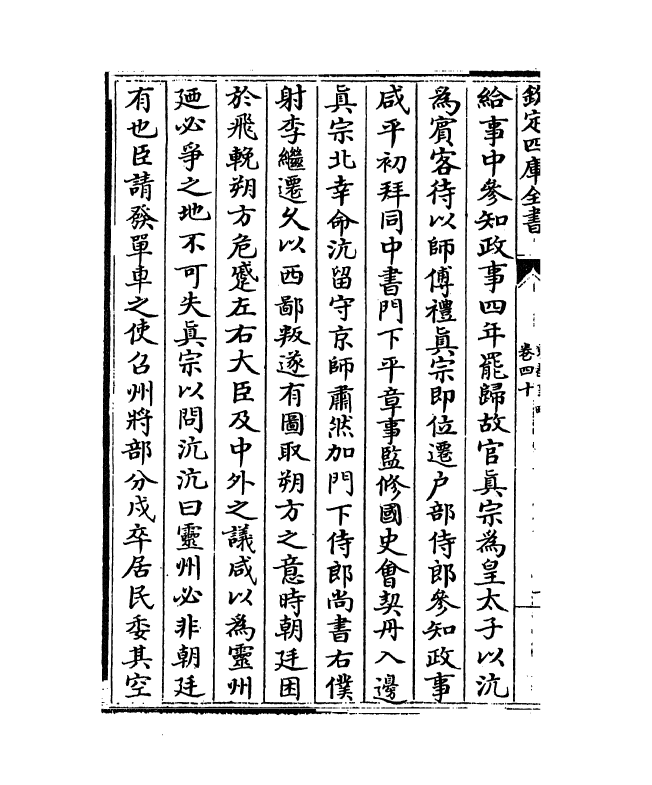 欽定四庫全書
卷四十
給事中參知政事四年罷歸故官眞宗為皇太子以沆
為賓客待以師傅禮眞宗即位遷户部侍郎參知政事
咸平初拜同中書門下平章事監修國史會契丹入邊
眞宗北幸命沆留守京師肅然加門下侍郎尚書右僕
射李繼遷乆以西鄙叛遂有圖取朔方之意時朝廷困
於飛輓朔方危蹙左右大臣及中外之議咸以為靈州
廼必爭之地不可失眞宗以問沆沆曰靈州必非朝廷
有也臣請發單車之使召州將部分戍卒居民委其空